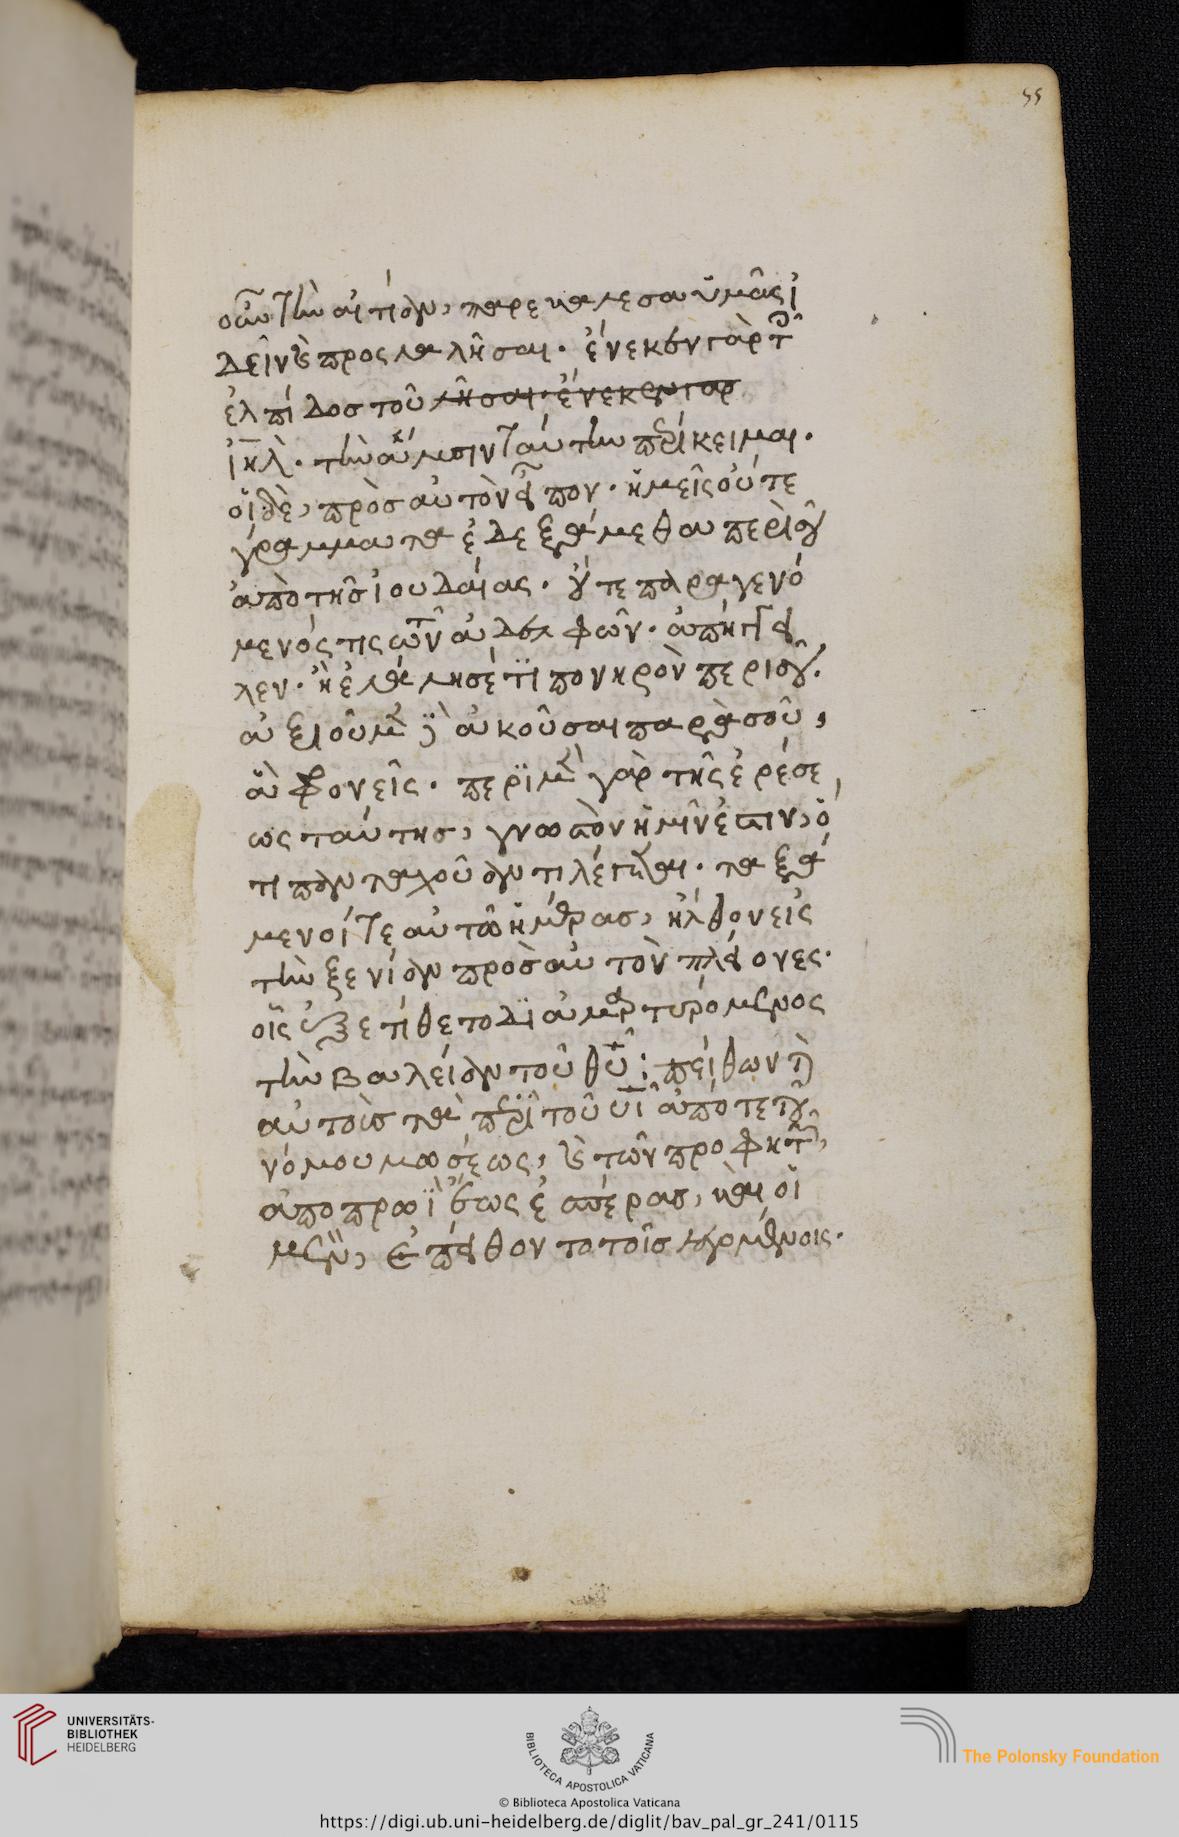 55
οὖν τὴν αἰτίαν, παρεκάλεσα ὑμᾶς ἰ
δεῖν καὶ προσλαλῆσαι· ἕνεκεν γὰρ τῆς
ἐλπίδος τοῦ λῆσαι· ἕνεκεν γαρ
ἰηλ· τὴν ἅλυσιν ταύτην περίκειμαι·
οἱ δὲ, πρὸς αὐτὸν εἶπον· ἡμεῖς οὔτε
γράμματα ἐδεξάμεθα περὶ σοῦ
ἀπὸ τῆς ἰουδαίας· οὔτε παραγενό
μενός τις τῶν ἀδελφῶν· ἀπήγγει
λεν· ἢ ἐλάλησέ τι πονηρὸν περι σοῦ.
ἀξιοῦμεν δὲ ἀκοῦσαι παρὰ σοῦ,
ἃ φρονεῖς· περὶ μὲν γὰρ τῆς ἑρέσε
ως ταύτης, γνωστὸν ἡμῖν ἐστιν, ὅ
τι πανταχοῦ ἀντιλέγεται· ταξά
μενοί τε αὐτῶ ἡμέρας, ἦλθον εἰς
τὴν ξενίαν πρὸς αὐτὸν πλείονες·
οἷς ἐξετίθετο διαμαρτυρόμενος
τὴν βασλείαν τοῦ θυ: πείθων τὲ
αὐτοὺς τὰ περὶ τοῦ ιυ ἀπό τε τοῦ
νόμου μωσέως, καὶ τῶν προφητῶν,
ἀπο πρωῒ ἕως ἐσπέρας, καὶ οἱ
μὲν, ἐπείθοντο τοῖς λεγομένοις·
UNIVERSITÄTS-
BIBLIOTHEK
HEIDELBERG
BIBLIOTECA APOSTOLICA VATICANA
The Polonsky Foundation
© Biblioteca Apostolica Vaticana
https://digi.ub.uni-heidelberg.de/diglit/bav_pal_gr_241/0115